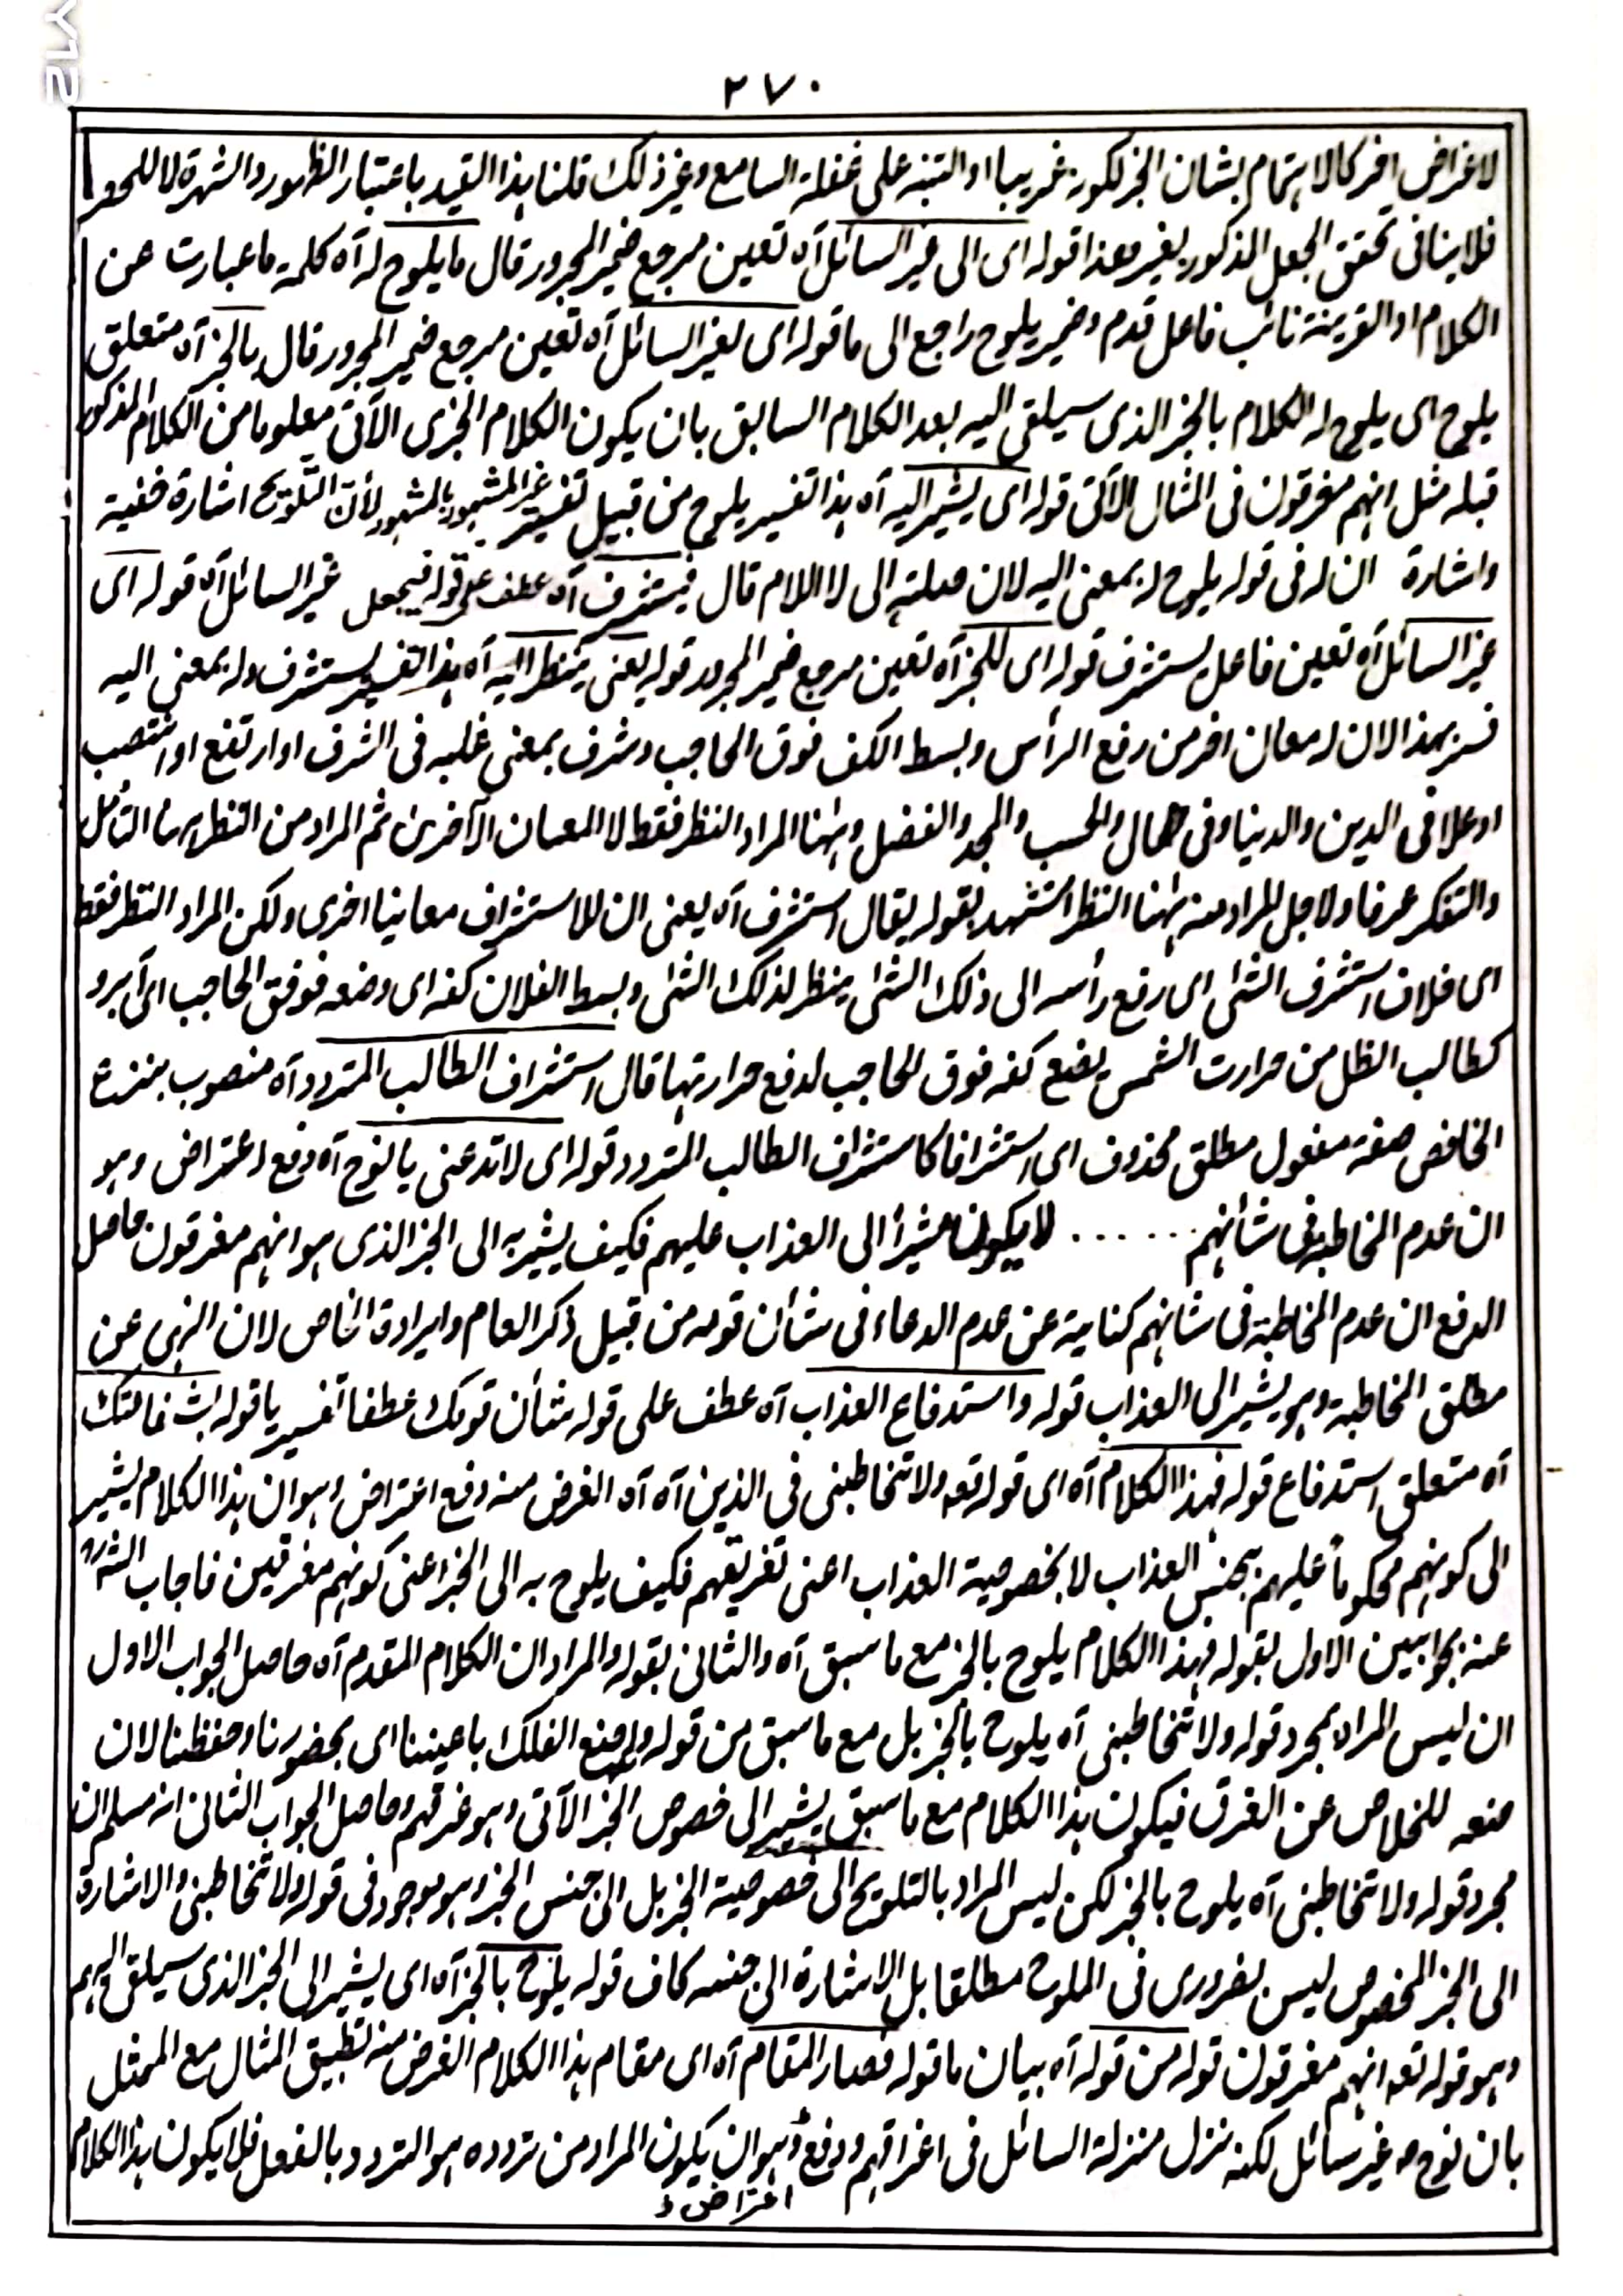 ٢٧٠
لاغراض اخر كالاهتمام بشان الخبر لكونه غريبا او التنبه على غفلة السامع وغير ذلك قلنا هذا القيد باعتبار الظهور والشهرة لا للحصر
فلا ينافى تحقق الجعل المذكور بغير هذا قوله اى الى غير السائل آه تعين مرجع ضمير المجرور قال ما يلوح له آه كلمة ما عبارت عن
الكلام او القرينة نائب فاعل قدم وضمير يلوح راجع الى ما قوله اى لغير السائل آه تعين مرجع ضمير المجرور قال بالخبر آه متعلق
يلوح اى يلوح له الكلام بالخبر الذى سيلقى اليه بعد الكلام السابق بان يكون الكلام الخبرى الآتى معلوما من الكلام المذكور
قبله مثل انهم مغرقون فى المثال الآتى قوله اى يشير اليه آه هذا تفسير يلوح من قبيل تفسير غير المشهور بالمشهور لأن التلويح اشارة خفية
واشارة ان له فى قوله يلوح له بمعنى اليه لان صلته الى لا اللام قال فيستشرف آه عطف على قوله فيجعل غير السائل آه قوله اى
غير السائل آه تعين فاعل يستشرف قوله اى للخبر آه تعين مرجع ضمير المجرور قوله يعنى ينتظر اليه آه هذا تفسير يستشرف وله بمعنى اليه
فسر بهذا لان له معان اخر من رفع الرأس وبسط الكف فوق الحاجب وشرف بمعنى غلبه فى الشرف او ارتفع او انتصب
او علا فى الدين والدنيا وفى همال والحسب والمجد والفضل وهٰهنا المراد النظر فقط لا المعان الآخرين ثم المراد من النظر هٰهنا التأمل
والتفكر عرفا ولاجل المراد منه هٰهنا النظر استشهد بقوله يقال استشرف آه يعنى ان للاستشراف معانيا اخرى ولكن المراد النظر فقط
اى فلان استشرف الشئ اى رفع رأسه الى ذلك الشئ ينظر لذلك الشئ وبسط الفلان كفه اى وضعه فوق الحاجب اى آبرو
كطالب الظل من حرارت الشمس يضع كفه فوق الحاجب لدفع حرارتها قال استشراف الطالب المتردد آه منصوب بنزع
الخافض صفة مفعول مطلق محذوف اى استشرافا كاستشراف الطالب المتردد قوله اى لا تدعنى يا نوح آه دفع اعتراض وهو
ان عدم المخاطبة فى شأنهم ...... لا يكون مشيرا الى العذاب عليهم فكيف يشير به الى الخبر الذى هو انهم مغرقون حاصل
الدفع ان عدم المخاطبة فى شانهم كناية عن عدم الدعاء فى شأن قومه من قبيل ذكر العام وايرادة الخاص لان النهى عن
مطلق المخاطبة وهو يشير الى العذاب قوله واستدفاع العذاب آه عطف على قوله شأن قومك عطفا تفسيريا قوله بشفاعتك
آه متعلق استدفاع قوله فهذا الكلام آه اى قوله تعه ولا تخاطبنى فى الذين آه آه الغرض منه دفع اعتراض وهو ان هذا الكلام يشير
الى كونهم محكوماً عليهم بجنس العذاب لا بخصوصية العذاب اعنى تغريقهم فكيف يلوح به الى الخبر اعنى كونهم مغرقين فاجاب الشه
عنه بجوابين الاول بقوله فهذا الكلام يلوح بالخبر مع ما سبق آه والثانى بقوله والمراد ان الكلام المقدم آه حاصل الجواب الاول
ان ليس المراد بمجرد قوله ولا تخاطبنى آه يلوح بالخبر بل مع ما سبق من قوله واصنع الفلك باعيننا اى بحضورنا وحفظنا لان
صنعه للخلاص عن الغرق فيكون هذا الكلام مع ما سبق يشير الى خصوص الخبر الآتى وهو غرقهم وحاصل الجواب الثانى انه مسلم ان
مجرد قوله ولا تخاطبنى آه يلوح بالخبر لكن ليس المراد بالتلويح الى خصوصية الخبر بل الى جنس الخبر وهو موجود فى قوله ولا تخاطبنى والاشارة
الى الخبر المخصوص ليس بضرورى فى الملوح مطلقا بل الاشارة الى جنسه كاف قوله يلوح بالخبر آه اى يشير الى الخبر الذى سيلقى اليهم
وهو قوله تعه انهم مغرقون قوله من قوله آه بيان ما قوله فصار المقام آه اى مقام هذا الكلام الغرض منه تطبيق المثال مع الممثل
بان نوح ع غير سائل لكنه نزل منزلة السائل فى اغراقهم ودفع وهو ان يكون المراد من تردده هو التردد بالفعل فلا يكون هذا الكلام
اعتراض